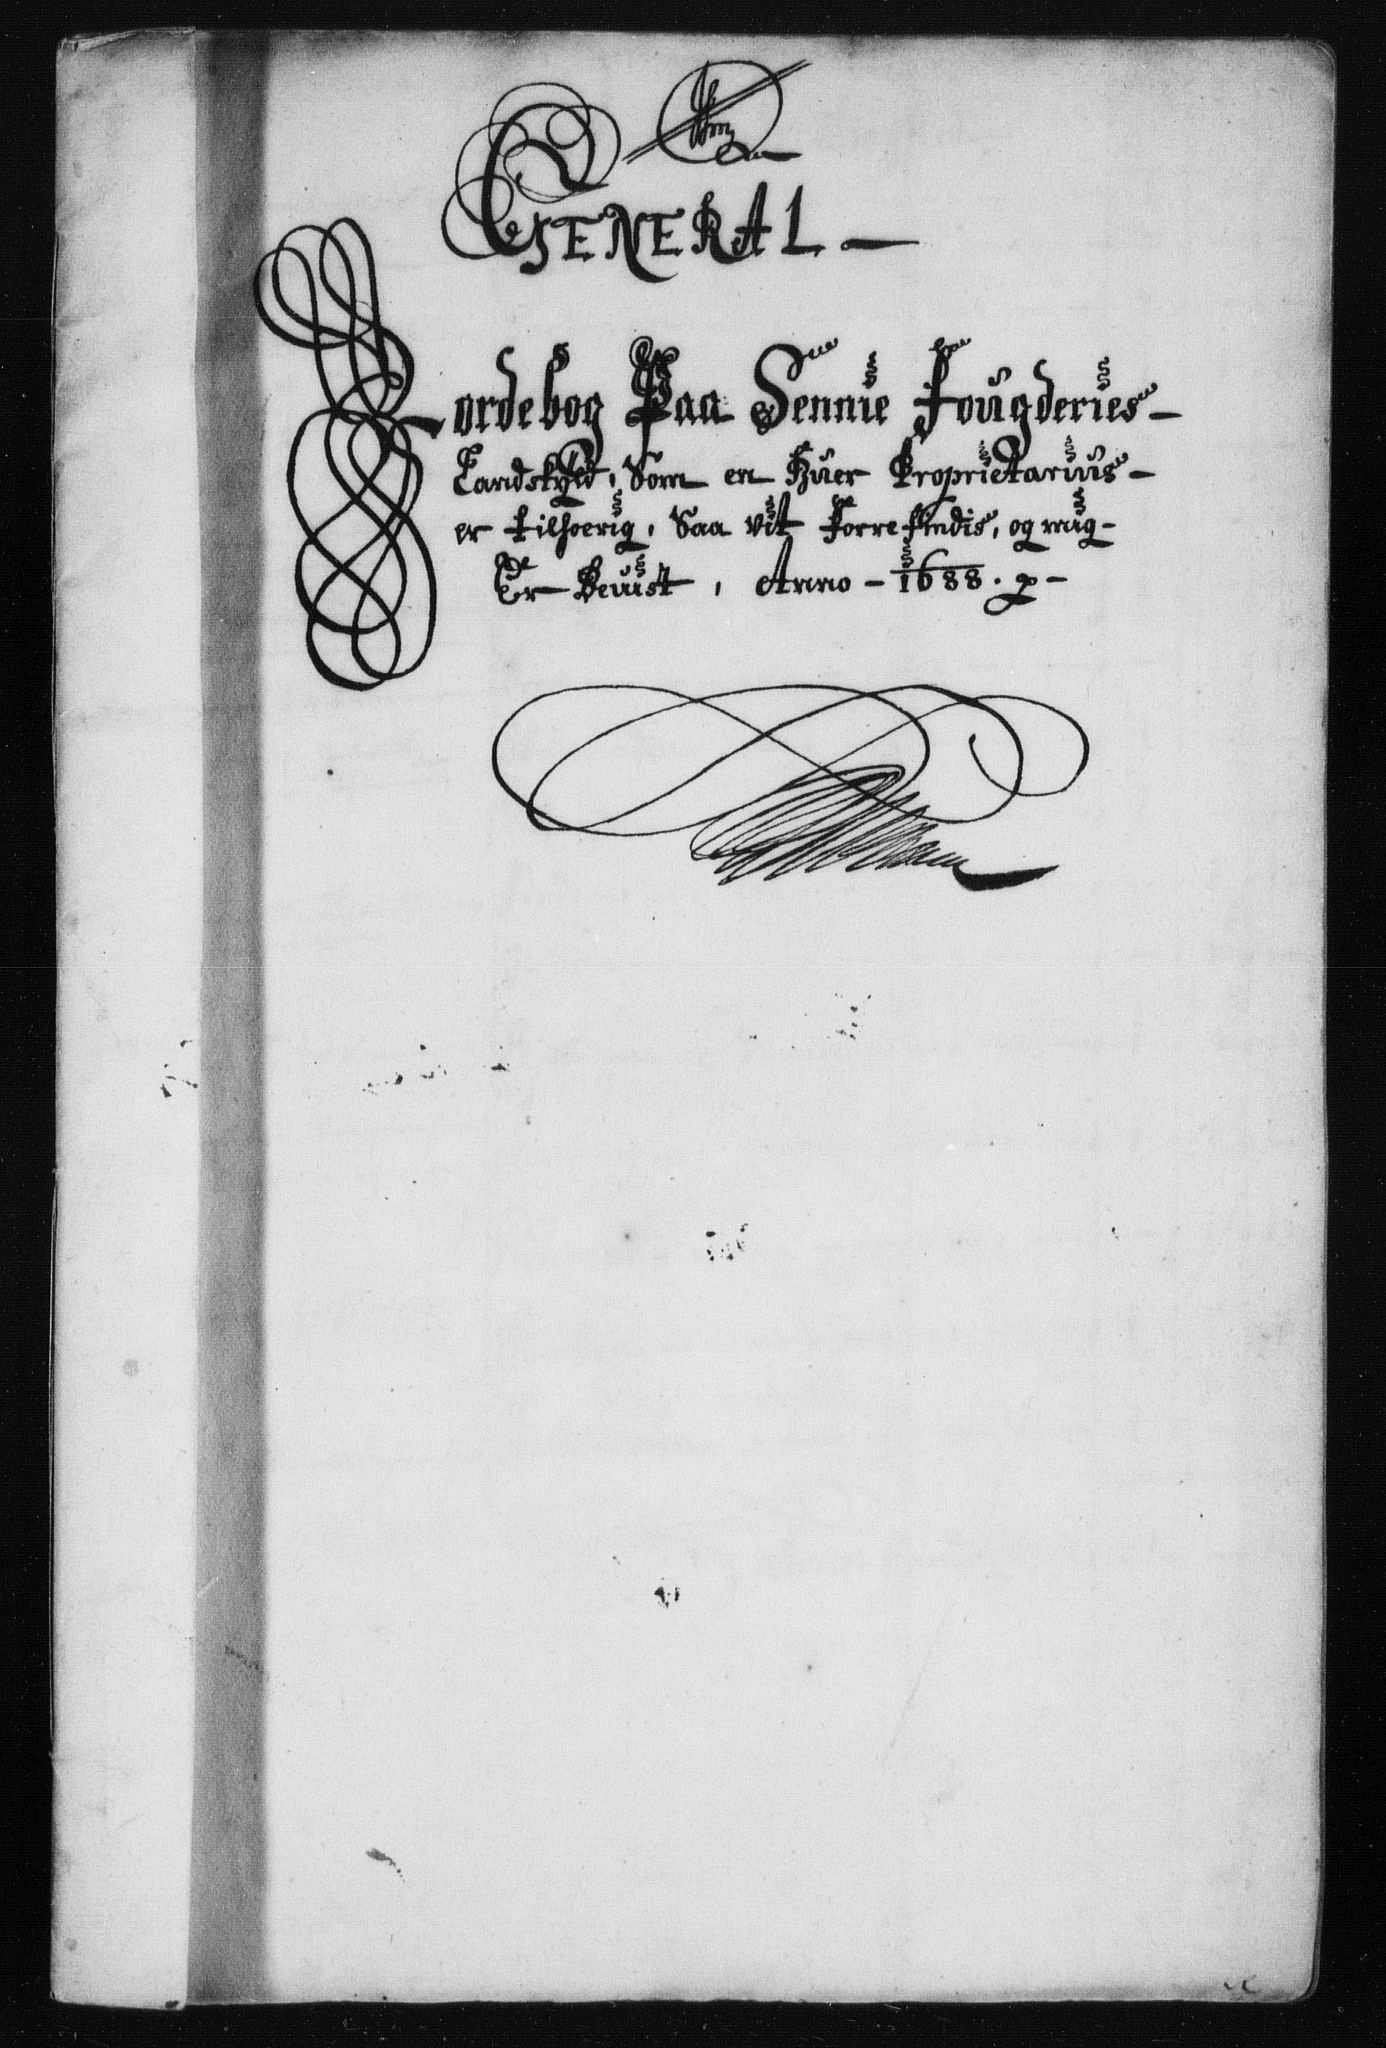 GENERAL —
Jordebog Paa Sennie Fougderies —
Landskyld, Som en Huer Proprietarius —
er tilhoerig, Saa vit Forrefindis, og mig —
Er Beuist, Anno — 1688. —